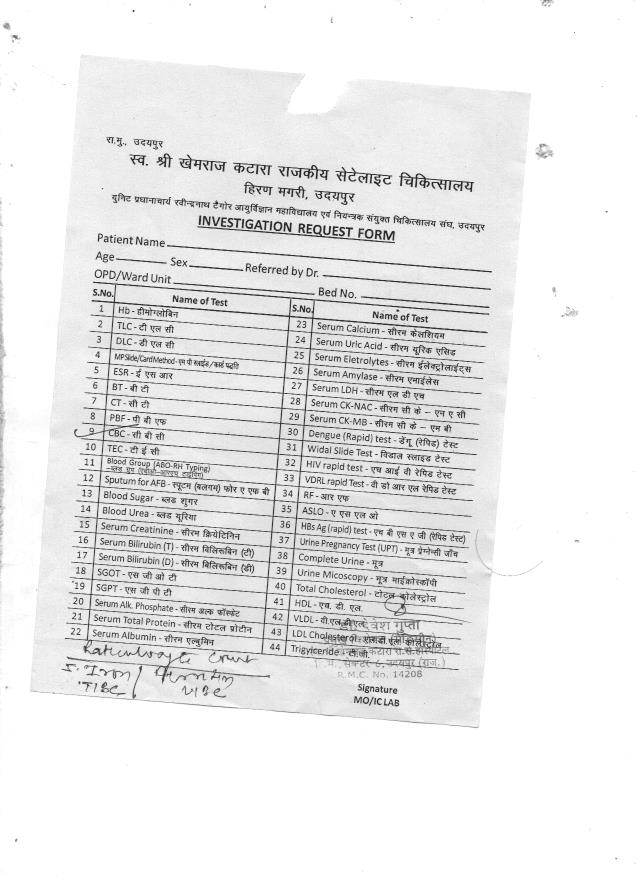 रा.मु., उदयपुर
स्व. श्री खेमराज कटारा राजकीय सेटेलाइट चिकित्सालय
हिरण मगरी, उदयपुर
युनिट प्रधानाचार्य रवीन्द्रनाथ टैगोर आयुर्विज्ञान महाविद्यालय एवं नियन्त्रक संयुक्त चिकित्सालय संघ, उदयपुर
INVESTIGATION REQUEST FORM
Patient Name
Age Sex Referred by Dr.
OPD/Ward Unit Bed No.
S.No. Name of Test
1 Hb - हीमोग्लोबिन
2 TLC - टी एल सी
3 DLC - डी एल सी
4 MPSlide/Card Method - एम पी स्लाईड / कार्ड पद्धति
5 ESR - ई एस आर
6 BT - बी टी
7 CT - सी टी
8 PBF - पी बी एफ
9 CBC - सी बी सी
10 TEC - टी ई सी
11 Blood Group (ABO-RH Typing)
12 Sputum for AFB - स्पूटम (बलगम) फोर ए एफ बी
13 Blood Sugar - ब्लड शुगर
14 Blood Urea - ब्लड यूरिया
15 Serum Creatinine - सीरम क्रियेटिनिन
16 Serum Bilirubin (T) - सीरम बिलिरूबिन (टी)
17 Serum Bilirubin (D) - सीरम बिलिरूबिन (डी)
18 SGOT - एस जी ओ टी
19 SGPT - एस जी पी टी
20 Serum Alk. Phosphate - सीरम अल्क फॉस्फेट
21 Serum Total Protein - सीरम टोटल प्रोटीन
22 Serum Albumin - सीरम एल्बुमिन
S.No. Name of Test
23 Serum Calcium - सीरम केलशियम
24 Serum Uric Acid - सीरम यूरिक एसिड
25 Serum Eletrolytes - सीरम ईलेक्ट्रोलाईट्स
26 Serum Amylase - सीरम एमाईलेस
27 Serum LDH - सीरम एल डी एच
28 Serum CK-NAC - सीरम सी के – एन ए सी
29 Serum CK-MB - सीरम सी के – एम बी
30 Dengue (Rapid) test - डेंगू (रेपिड) टेस्ट
31 Widal Slide Test - विडाल स्लाइड टेस्ट
32 HIV rapid test - एच आई वी रेपिड टेस्ट
33 VDRL rapid Test - वी डी आर एल रेपिड टेस्ट
34 RF - आर एफ
35 ASLO - ए एस एल ओ
36 HBs Ag (rapid) test - एच बी एस ए जी (रेपिड टेस्ट)
37 Urine Pregnancy Test (UPT) - मूत्र प्रेग्नेन्सी जाँच
38 Complete Urine - मूत्र
39 Urine Micoscopy - मूत्र माईक्रोस्कॉपी
40 Total Cholesterol - टोटल कोलेस्ट्रोल
41 HDL - एच. डी. एल.
42 VLDL - वी.एल.डी.एल.
43 LDL Cholesterol - एल.डी.एल कोलेस्ट्रोल
44 Trigyiceride - टी.जी.
Count
S. Iron / Ferritin
TIBC
देवेश गुप्ता
सेक्टर-6, उदयपुर (राज.)
R.M.C. No. 14208
Signature
MO/IC LAB